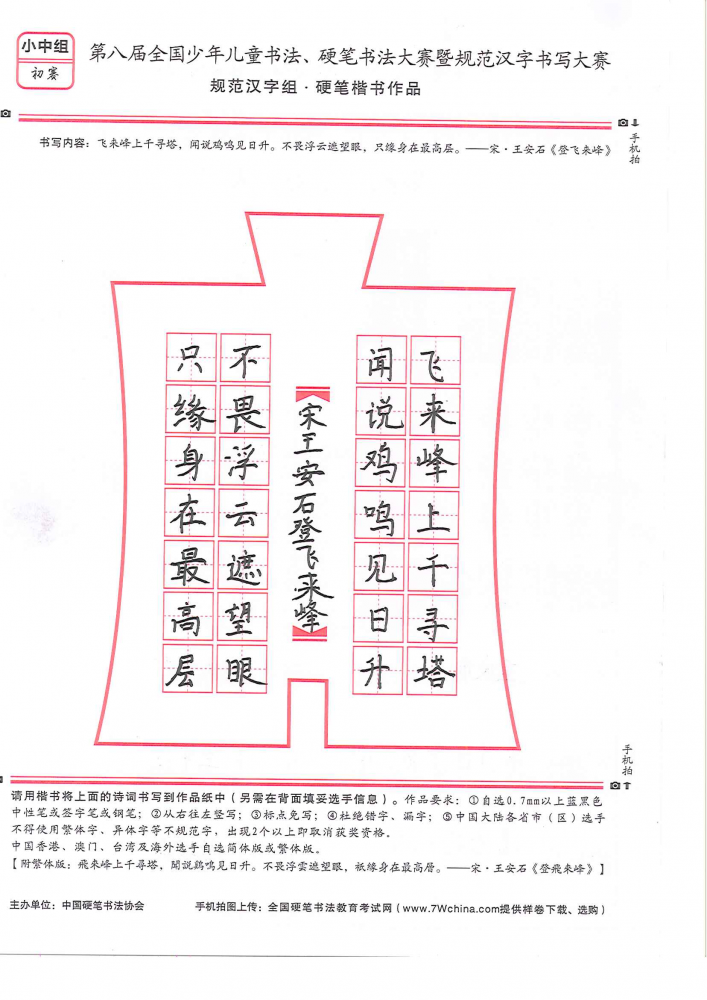 小中组
初赛
第八届全国少年儿童书法、硬笔书法大赛暨规范汉字书写大赛
规范汉字组·硬笔楷书作品
手机拍
书写内容：飞来峰上千寻塔，闻说鸡鸣见日升。不畏浮云遮望眼，只缘身在最高层。——宋·王安石《登飞来峰》
飞来峰上千寻塔
闻说鸡鸣见日升
宋王安石登飞来峰
不畏浮云遮望眼
只缘身在最高层
手机拍
请用楷书将上面的诗词书写到作品纸中（另需在背面填妥选手信息）。作品要求：①自选0.7mm以上蓝黑色
中性笔或签字笔或钢笔；②从右往左竖写；③标点免写；④杜绝错字、漏字；⑤中国大陆各省市（区）选手
不得使用繁体字、异体字等不规范字，出现2个以上即取消获奖资格.
中国香港、澳门、台湾及海外选手自选简体版或繁体版。
【附繁体版：飛來峰上千尋塔，聞說鷄鳴見日升。不畏浮雲遮望眼，衹緣身在最高層。——宋·王安石《登飛來峰》】
主办单位：中国硬笔书法协会
手机拍图上传：全国硬笔书法教育考试网（www.7Wchina.com提供样卷下载、选购）